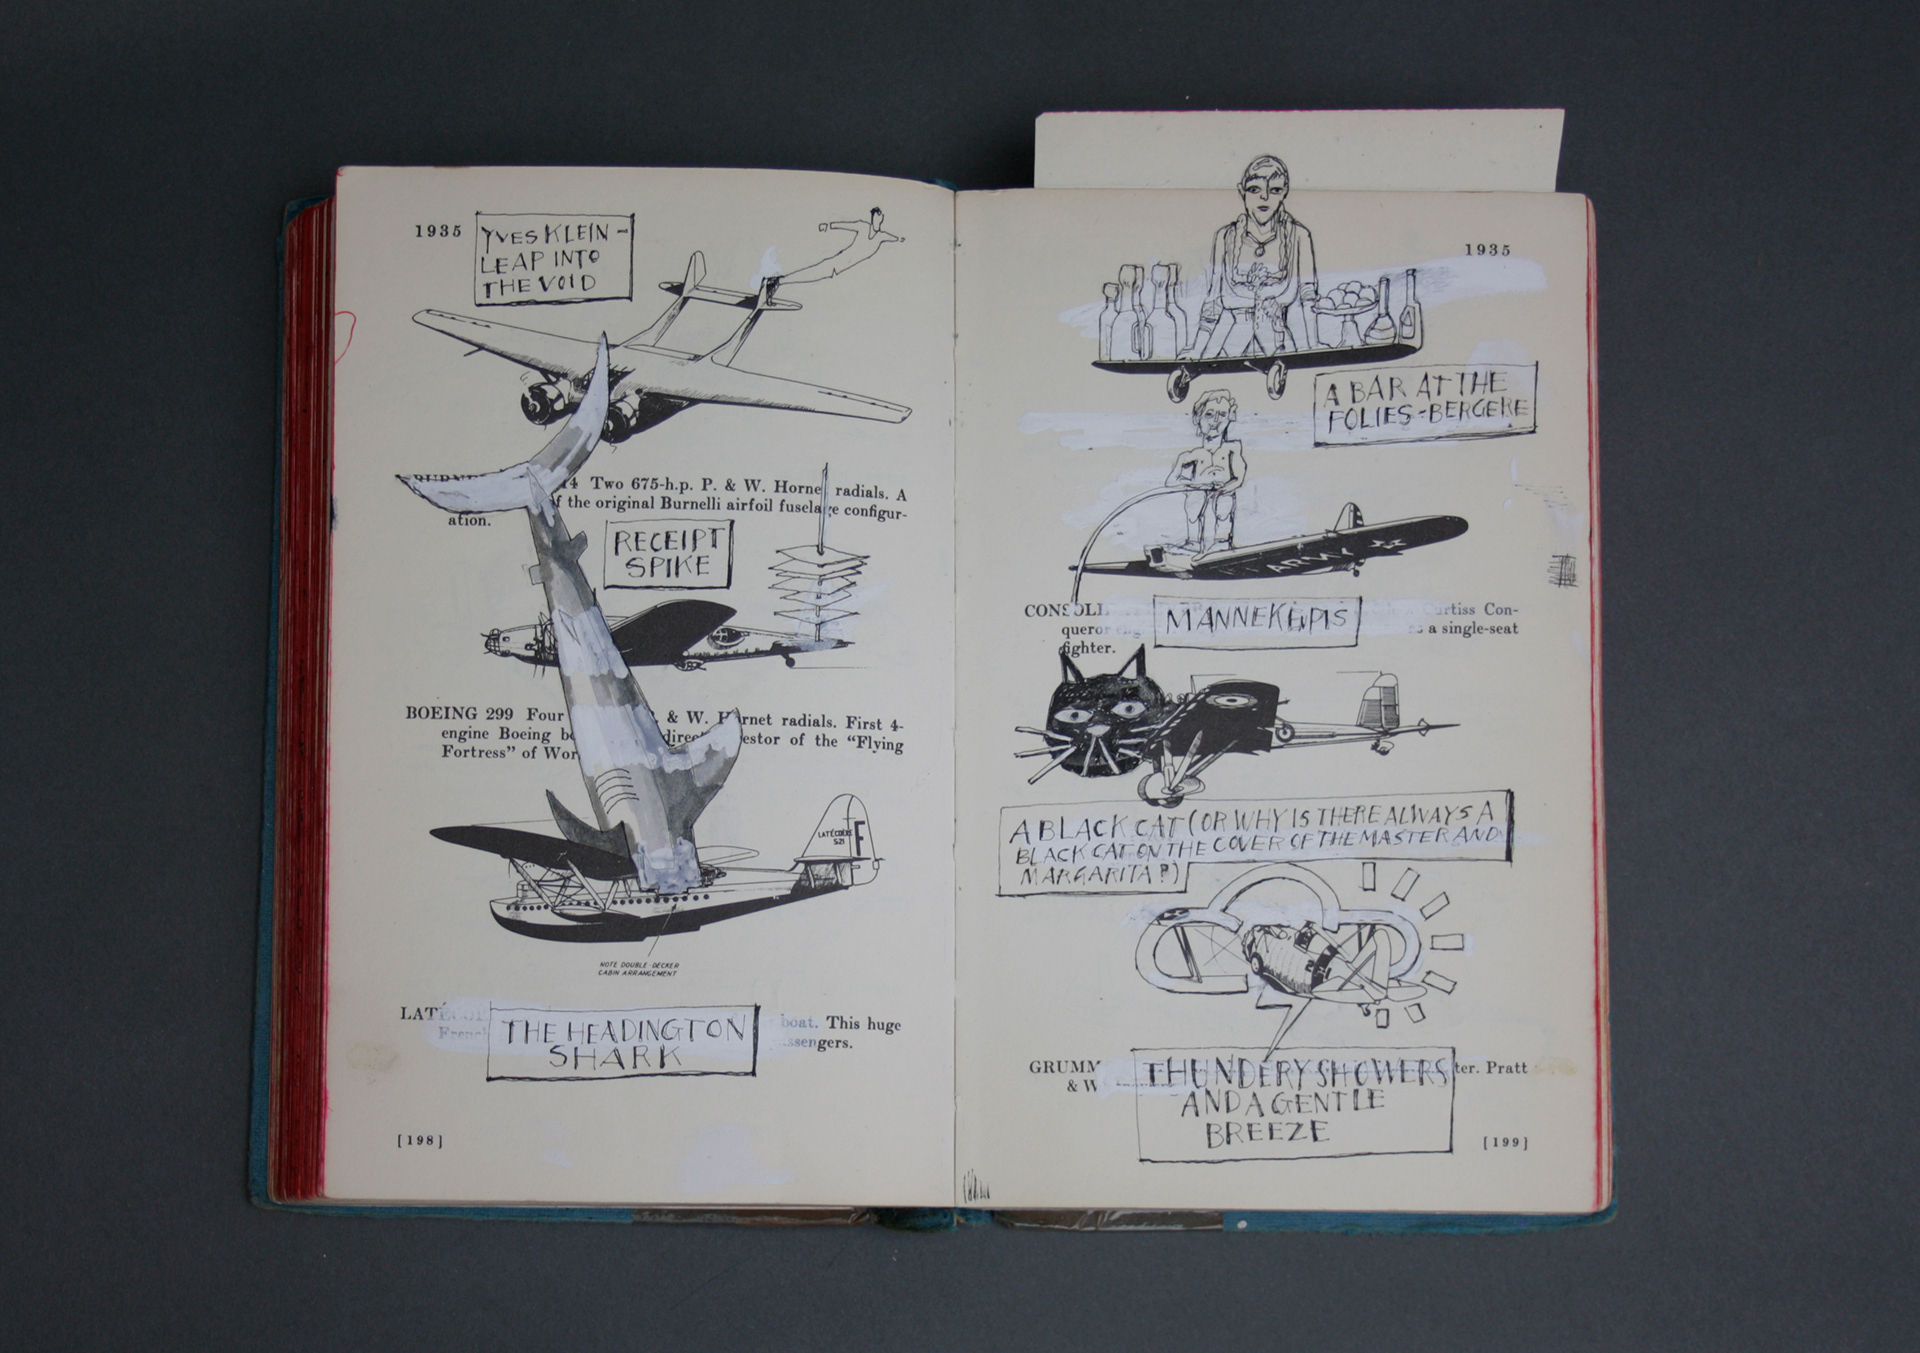 1935
YVES KLEIN -
LEAP INTO
THE VOID
14 Two 675-h.p. P. & W. Hornet radials. A
of the original Burnelli airfoil fuselage configur-
ation.
RECEIPT
SPIKE
BOEING 299 Four & W. Hornet radials. First 4-
engine Boeing direct of the "Flying
Fortress" of
LATÉCOÈRE
521
F
NOTE DOUBLE-DECKER
CABIN ARRANGEMENT
boat. This huge
French
THE HEADINGTON
SHARK
[198]
1935
A BAR AT THE
FOLIES-BERGERE
ARMY
Curtiss Con-
queror a single-seat
fighter.
MANNEKENPIS
A BLACK CAT (OR WHY IS THERE ALWAYS A
BLACK CAT ON THE COVER OF THE MASTER AND
MARGARITA?)
Pratt
& W
THUNDERY SHOWERS
AND A GENTLE
BREEZE
[199]